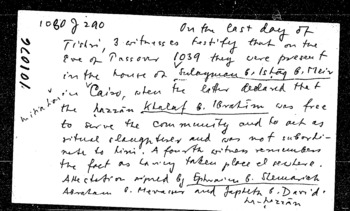 1080 J 290
On the last day of
Tishri, 3 witnesses testify that on the
Eve of Passover 1039 they were present
in the house of Sulayman b. Ishaq b. Meir
in Cairo, when the latter declared that
the ḥazzān Khalaf b. Ibrahim was free
to serve the community and to act as
ritual slaughterer and was not subordi-
nate to him. A fourth witness remembers
the fact as having taken place elsewhere.
Attestation signed by Ephraim b. Shemariah
Abraham b. Mevasser and Japheth b. David.
ha-Ḥazzān
101076